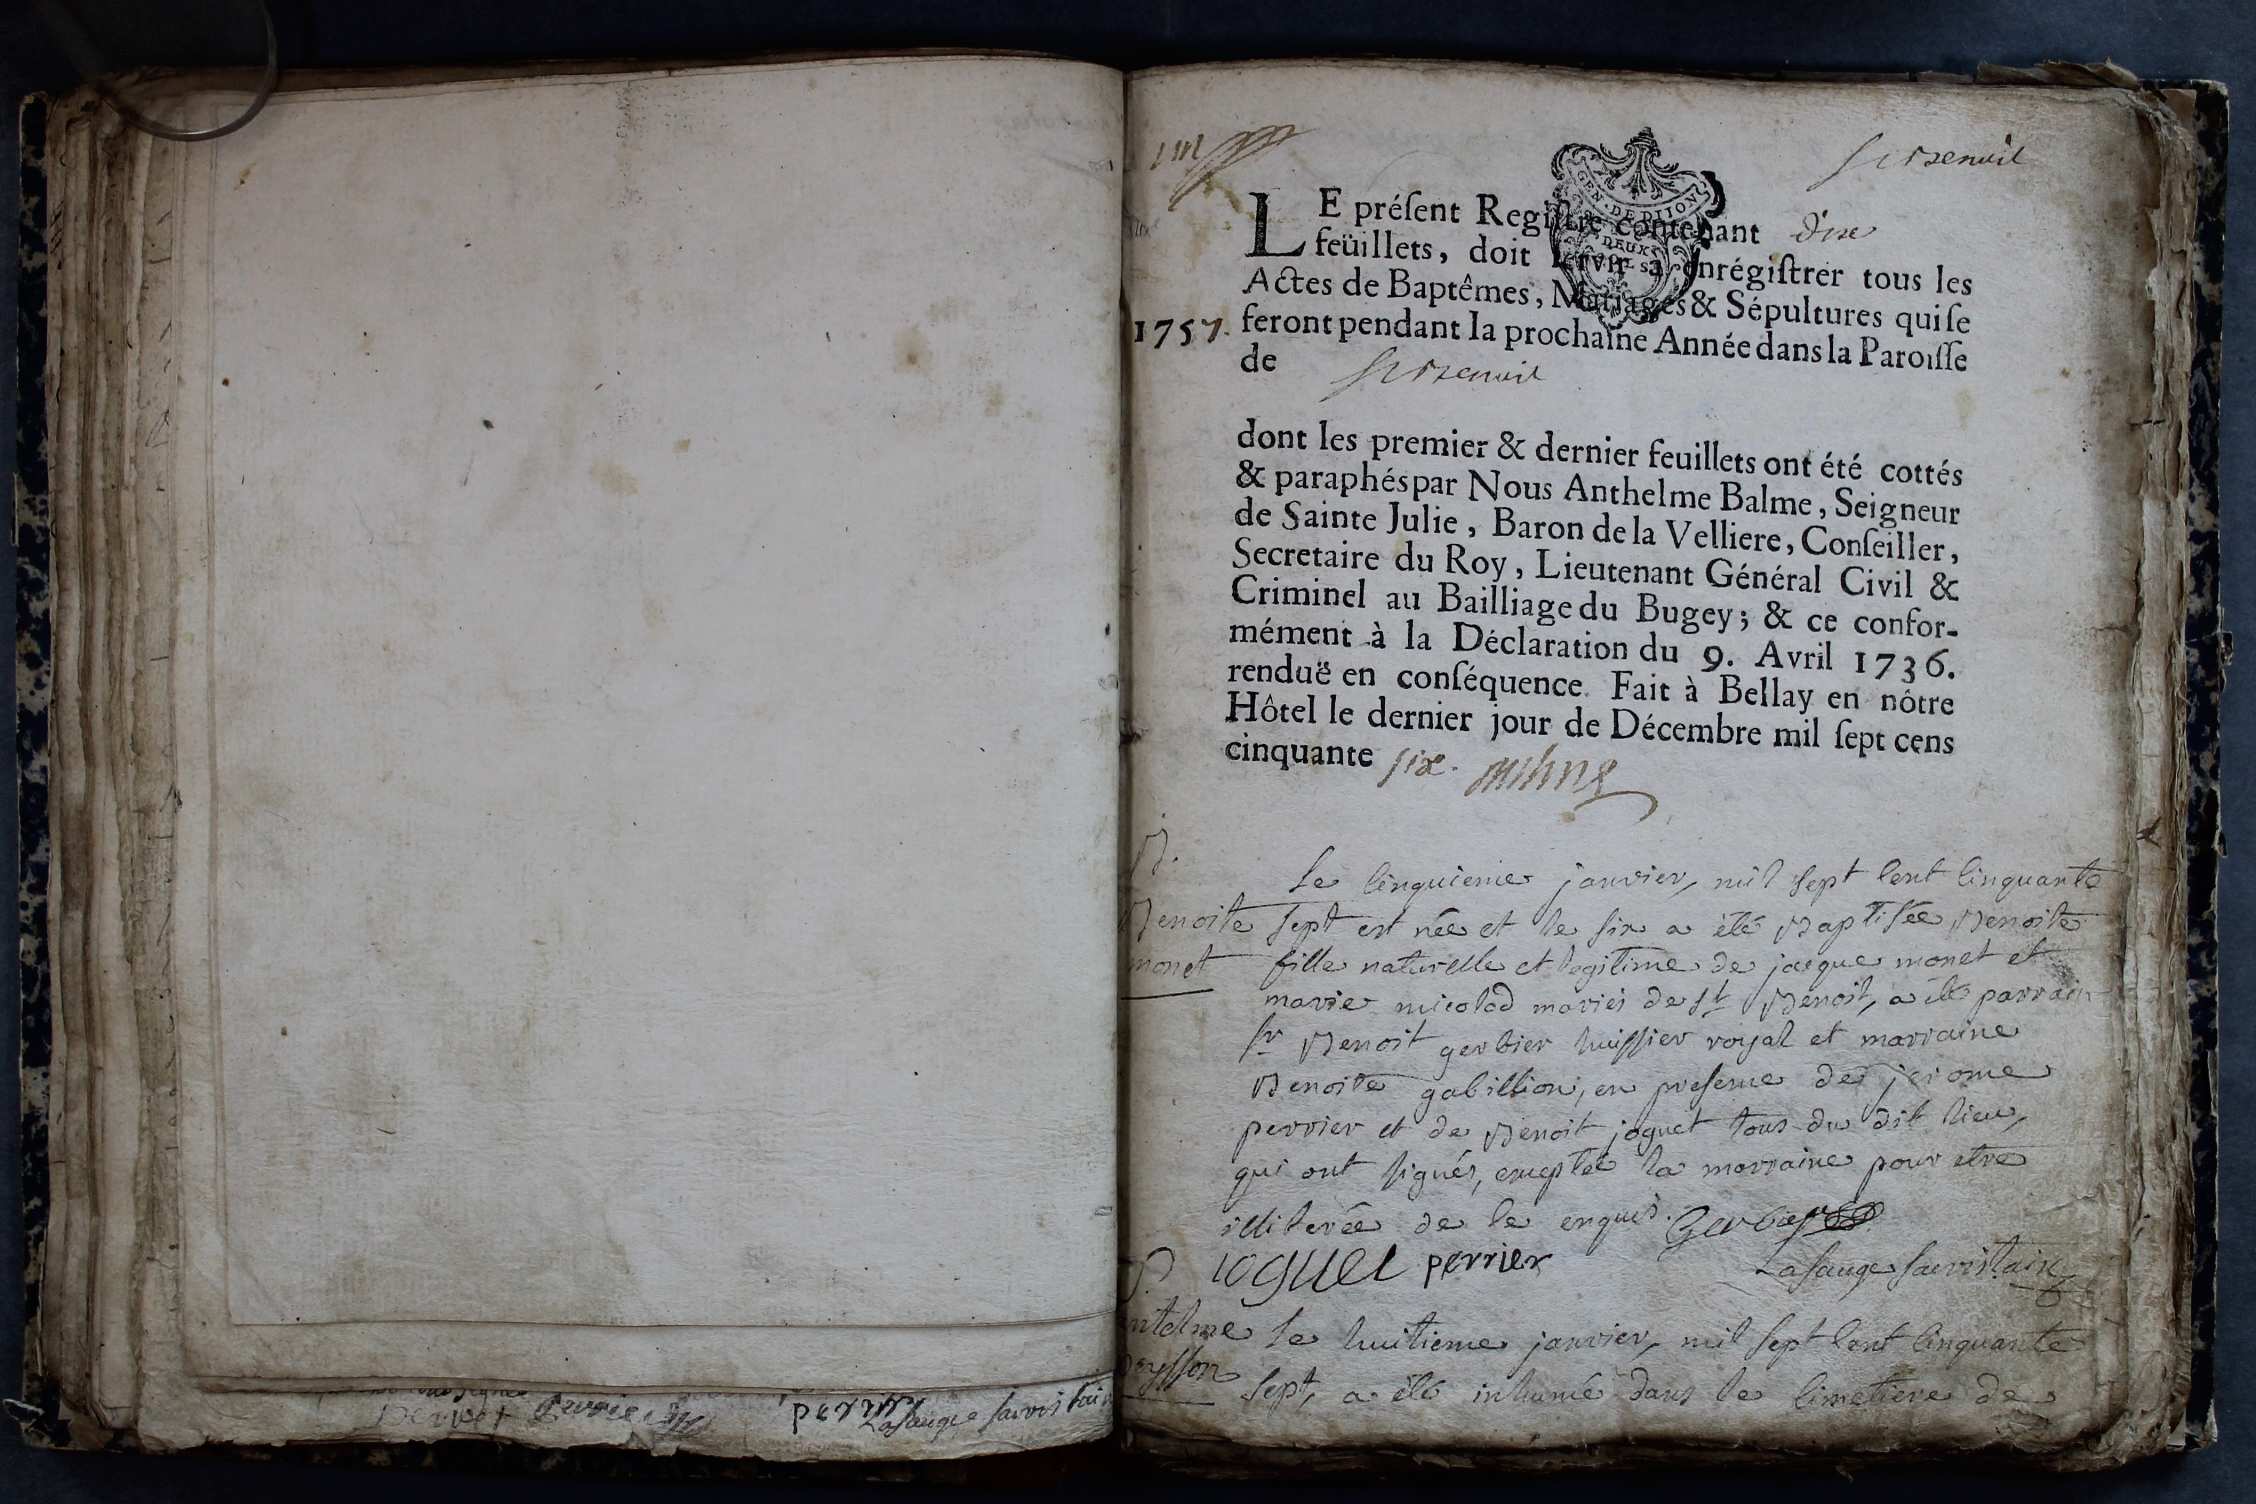 GEN · DE DIJON
DEUX
SOLS
LE préſent Regiſtre contenant dix
feüillets, doit ſervir à enrégiſtrer tous les
Actes de Baptêmes, Mariages & Sépultures qui ſe
1757. feront pendant la prochaine Année dans la Paroiſſe
de St Benoit
dont les premier & dernier feuillets ont été cottés
& paraphés par Nous Anthelme Balme, Seigneur
de Sainte Julie, Baron de la Velliere, Conſeiller,
Secretaire du Roy, Lieutenant Général Civil &
Criminel au Bailliage du Bugey; & ce confor-
mément à la Déclaration du 9. Avril 1736.
renduë en conſéquence. Fait à Bellay en nôtre
Hôtel le dernier jour de Décembre mil ſept cens
cinquante six.
B.
Benoite
monet
Le cinquieme janvier, mil sept cent cinquante
sept est née et le six a été Baptisée Benoite
fille naturelle et legitime de jacque monet et
marie nicolod mariés de St Benoit, a été parrain
Sr Benoit gerbier huissier royal et marraine
Benoite gabillion, en presence de jerome
perrier et de Benoit joguet tous du dit lieu,
qui ont signés, exceptée la marraine pour etre
illiterée de ce enquis. Gerbier
ioguet perrier
Lasauge sacristain
S.
antelme
Le huitieme janvier, mil sept cent cinquante
sept, a été inhumé dans le cimetiere de
perrier
Lasauge sacristain